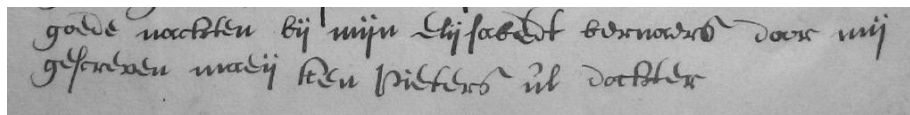 goede nackten bij mijn elijsabedt bernaers door mij
gescreven maeij ken Pieters ul docktter